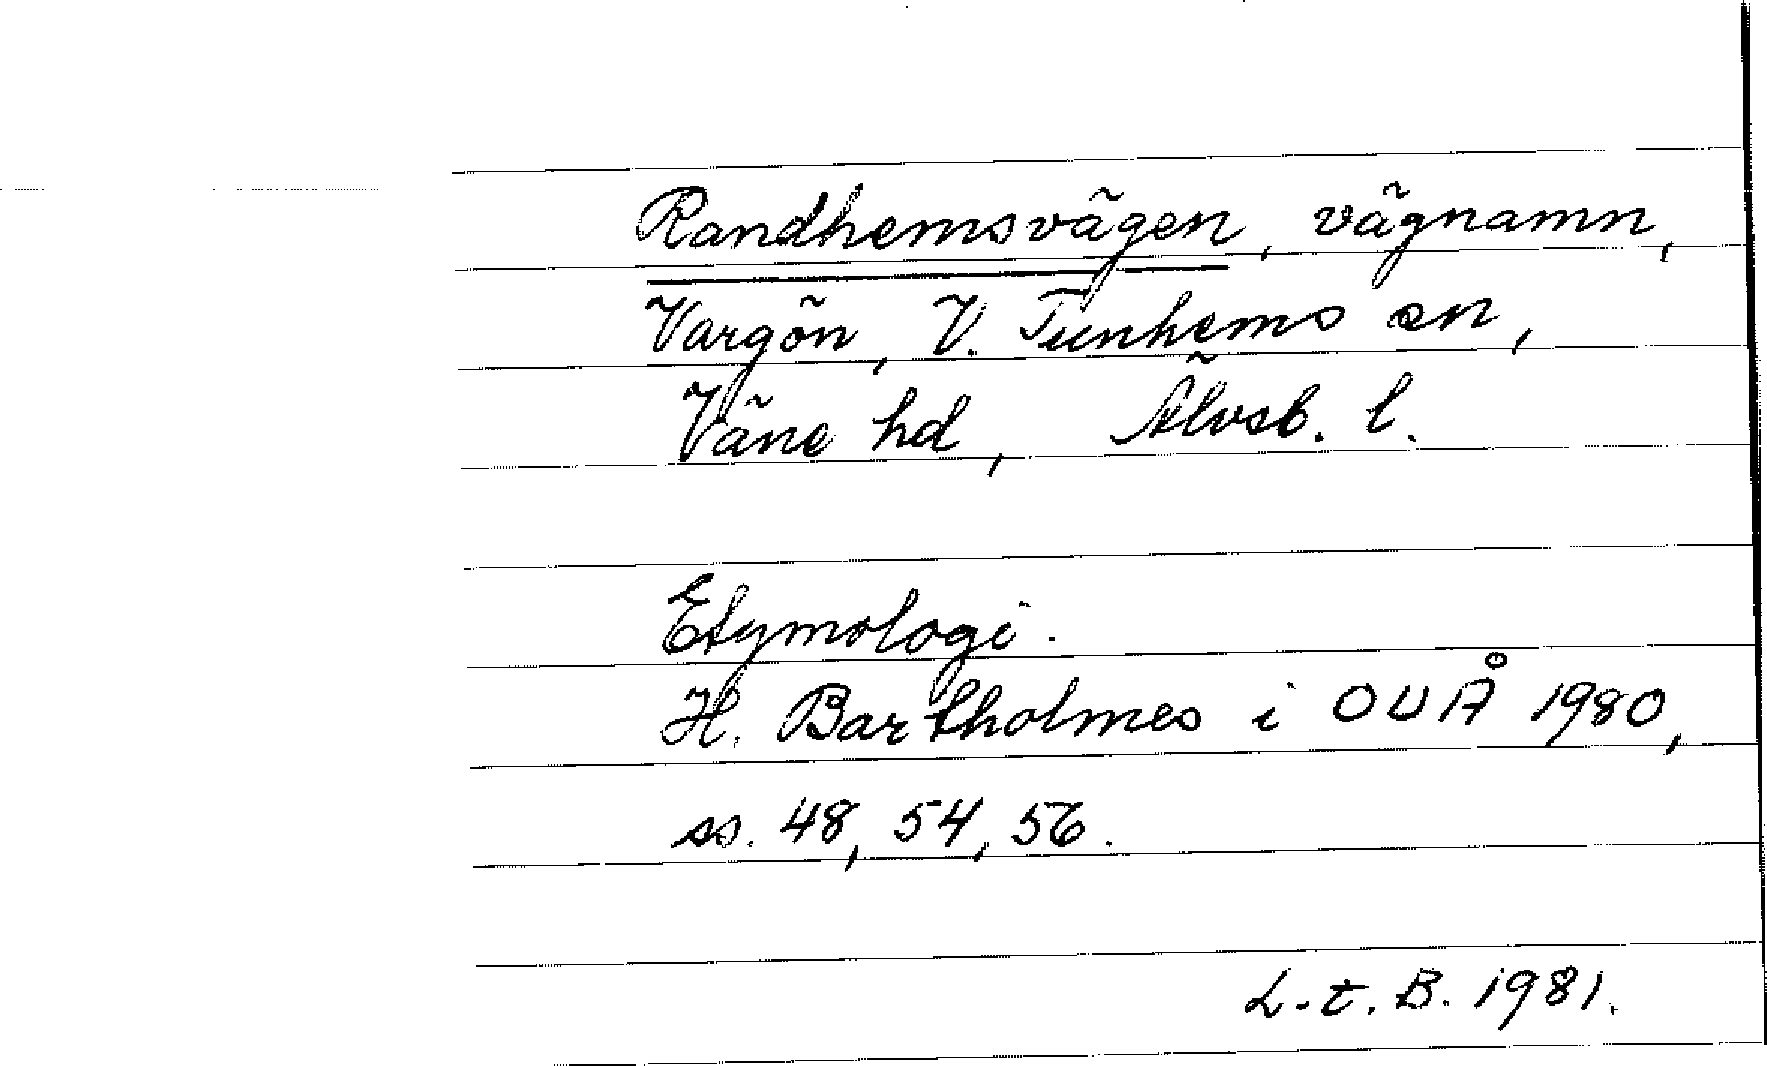 Randhemsvägen, vägnamn,
Vargön, V. Tunhems sn,
Väne hd, Älvsb. l.
Etymologi.
H. Bartholmes i OUÅ 1980,
ss. 48, 54, 56.
L.t.B. 1981.